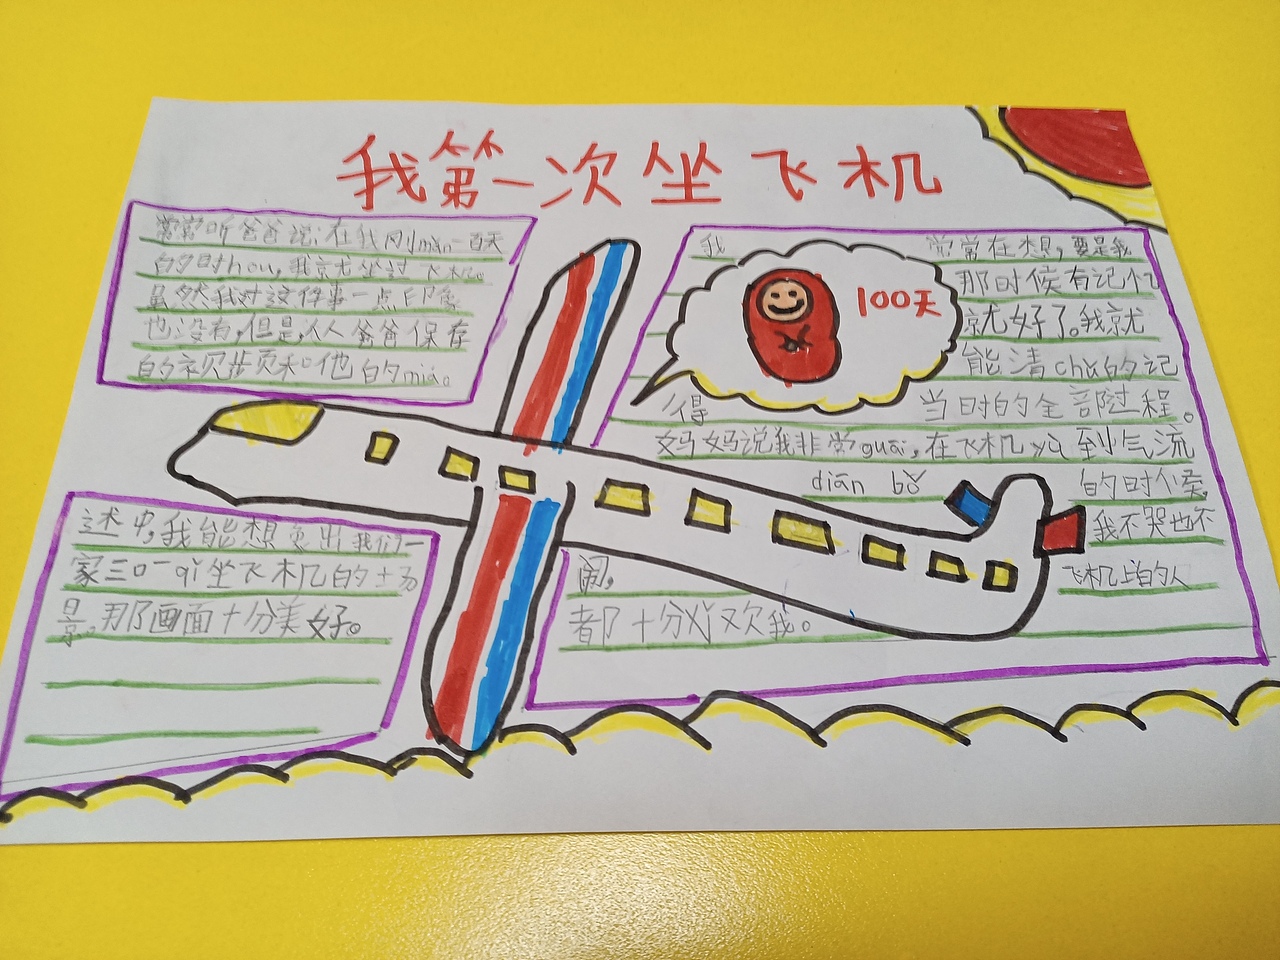 我第一次坐飞机
常常听爸爸说:在我刚mǎn一百天
的时hou,我就坐过飞机。
虽然我对这件事一点印象
也没有,但是,从爸爸保存
的视频和他的miáo
述中,我能想象出我们一
家三口一qǐ坐飞机的场
景。那画面十分美好。
我常常在想,要是我
那时候有记忆
就好了。我就
能清chǔ的记
得当时的全部过程。
妈妈说我非常guāi,在飞机yù到气流
diān bǒ的时候,
我不哭也不
闹,飞机上的人
都十分喜欢我。
100天